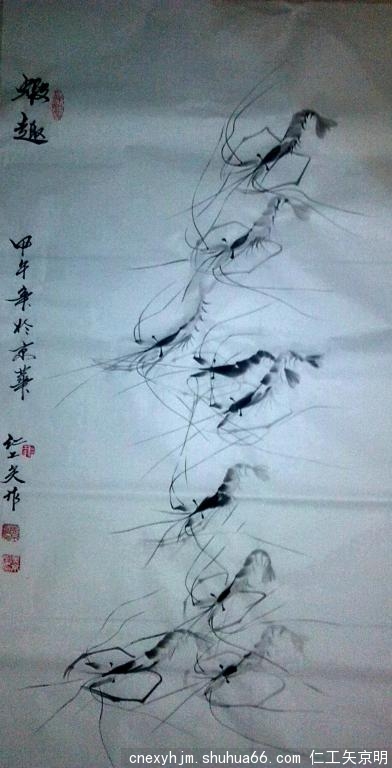 蝦趣
甲午年於京華
仁工矢作
cnexyhjm.shuhua66.com 仁工矢京明